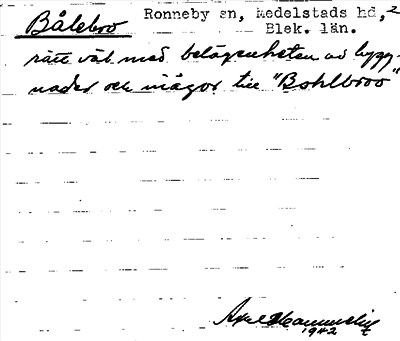 Bålebro Ronneby sn, Medelstads hd, 2
Blek. län.
rätt väl med belägenheten av bygg-
nader och vägar till "Bohlbroo"
1942